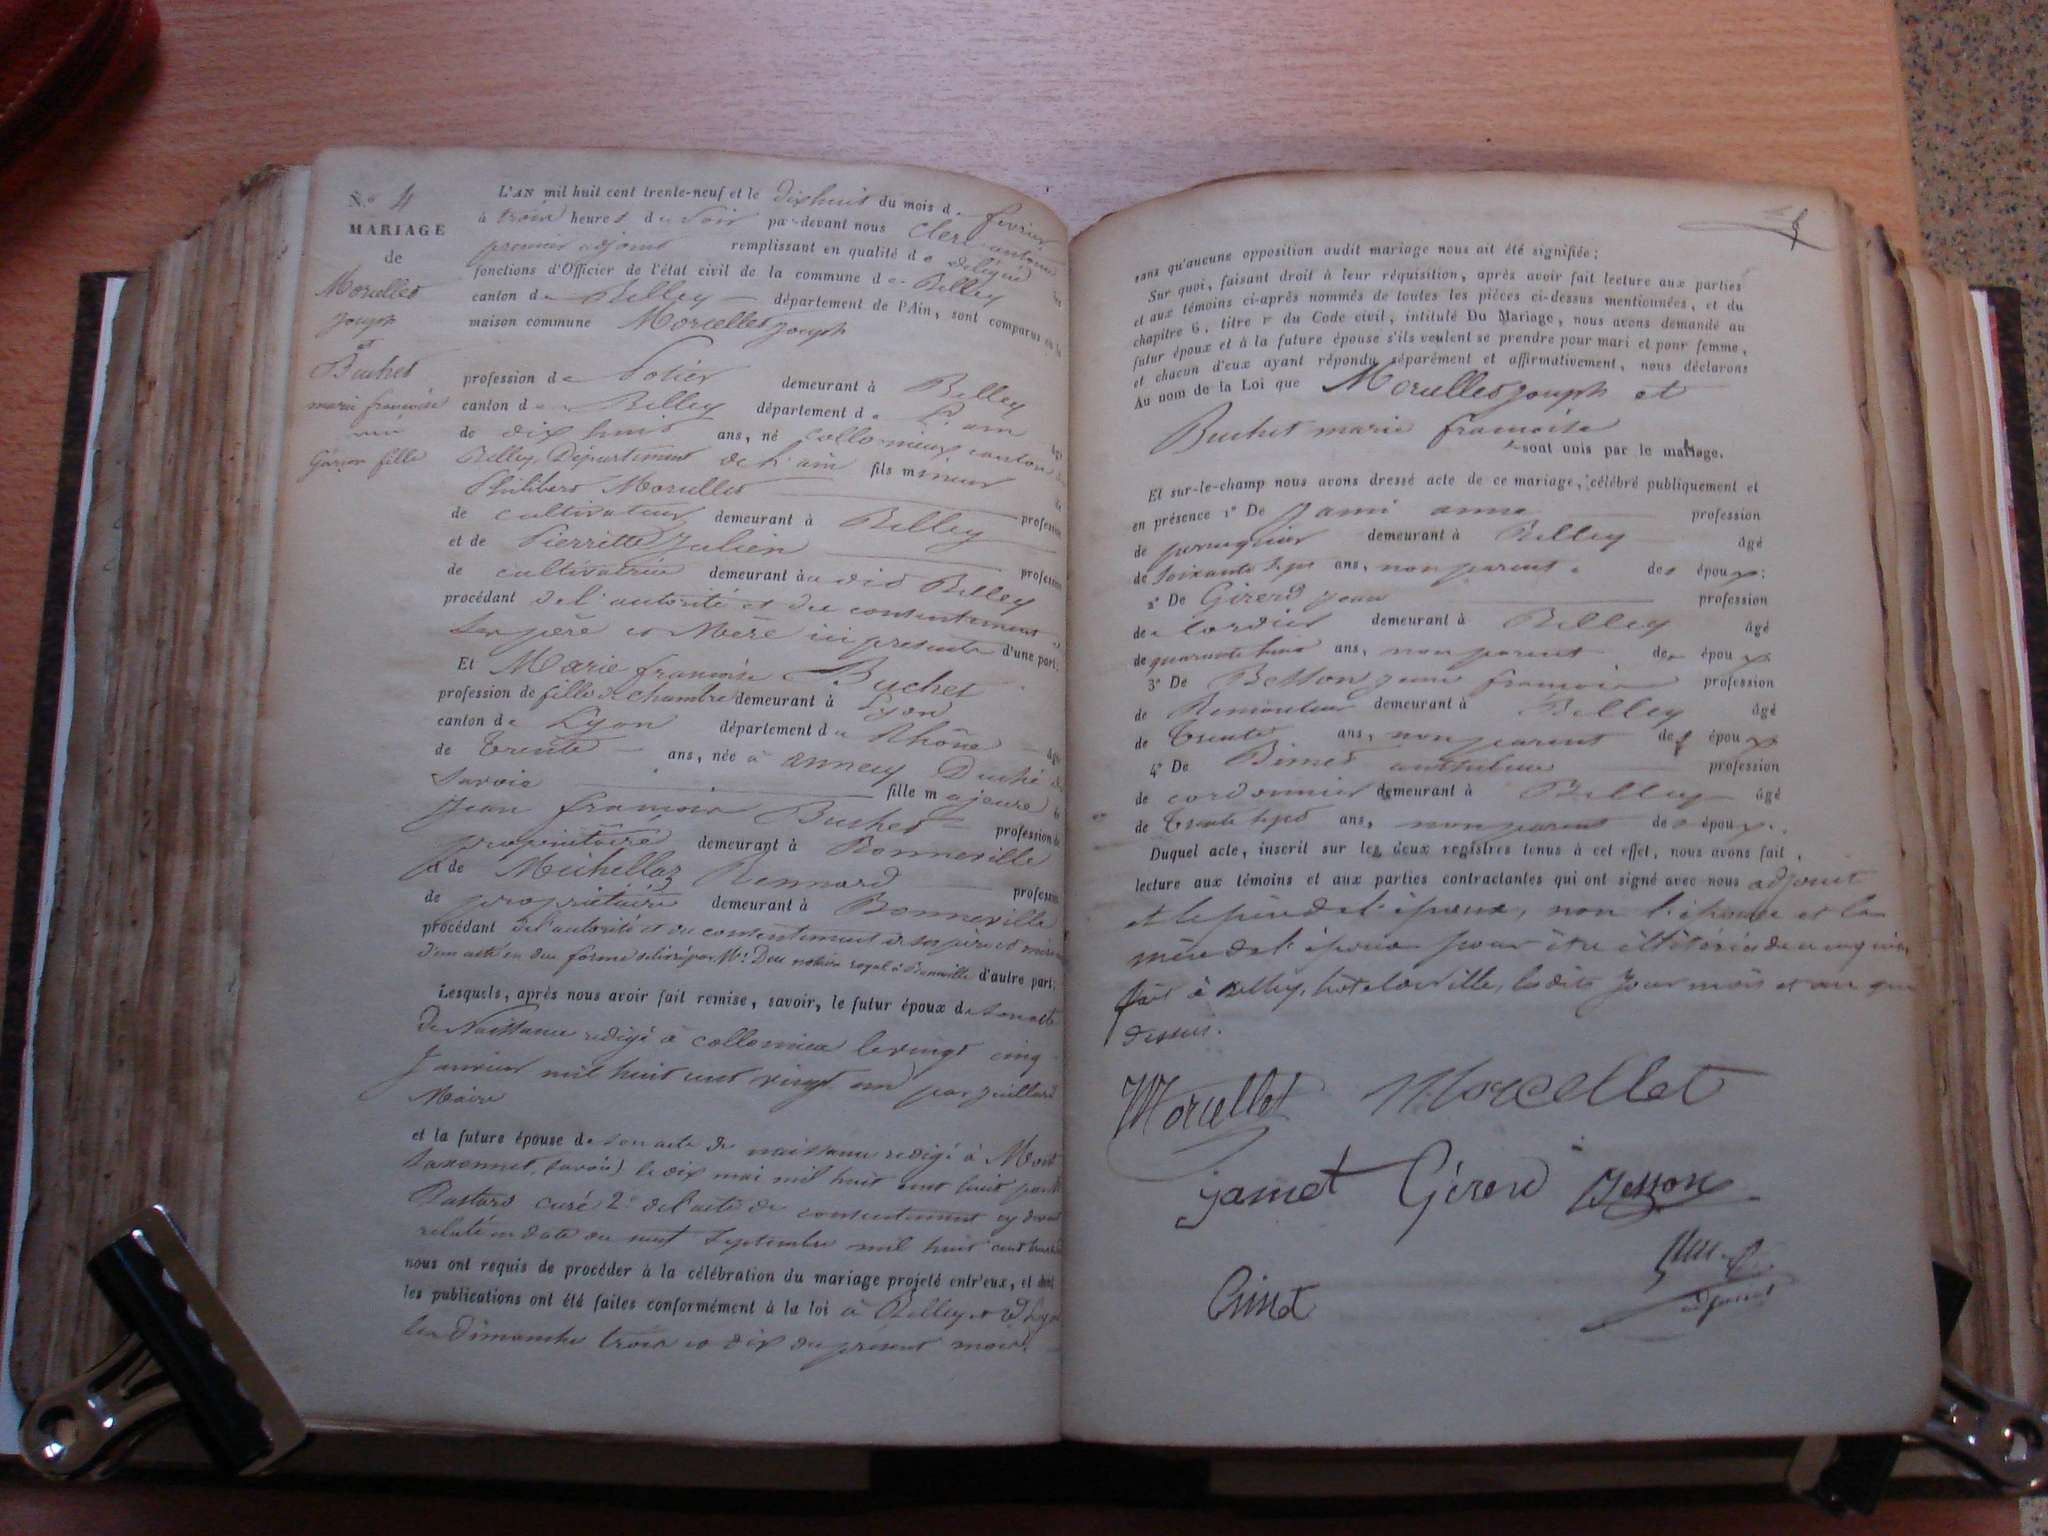 N.° 4
MARIAGE
de
Morcellet
Joseph
et
Buchet
marie françoise
Garçon fille
L'AN mil huit cent trente-neuf et le dixhuit du mois de fevrier
à trois heures du Soir par-devant nous Clerc antoine
premier adjoint remplissant en qualité de délégué les
fonctions d'Officier de l'état civil de la commune de Belley
canton de Belley département de l'Ain, sont comparus en la
maison commune Morcellet Joseph
profession de Potier demeurant à Belley
canton de Belley département de L'ain âgé
de dix huit ans, né Collomieux canton de
Belley, Département de L'ain fils mineur de
Philibert Morcellet profession
de cultivateur demeurant à Belley
et de Pierrette Julien profession
de cultivatrice demeurant audit Belley
procédant de l'autorité et du consentement de
Ses père et Mère ici présents d'une part.
Et Marie françoise Buchet
profession de fille de chambre demeurant à Lyon
canton de Lyon département du Rhône âgée
de Trente ans, née à annecy Duché de
Savoie fille majeure de
Jean françois Buchet profession de
propriétaire demeurant à Bonneville
et de Michellaz Rennard profession
de propriétaire demeurant à Bonneville
procédant de l'autorité et du consentement de ses père et mère
d'un acte en due forme délivré par M.e notaire royal à Bonneville d'autre part.
Lesquels, après nous avoir fait remise, savoir, le futur époux de son acte
de Naissance redigé à Collomieu le vingt cinq
Janvier mil huit cent vingt un par Juillard
Maire
et la future épouse de son acte de naissance redigé à Mont
Saxonnet, (savoie) le dix mai mil huit cent huit par
Bastard curé 2° de l'acte de consentement cy devant
relaté en date du neuf Septembre mil huit cent
nous ont requis de procéder à la célébration du mariage projeté entr'eux, et dont
les publications ont été faites conformément à la loi à Belley et à Lyon
les Dimanche trois et dix du présent mois.
sans qu'aucune opposition audit mariage nous ait été signifiée;
Sur quoi, faisant droit à leur réquisition, après avoir fait lecture aux parties
et aux témoins ci-après nommés de toutes les pièces ci-dessus mentionnées, et du
chapitre 6, titre v du Code civil, intitulé Du Mariage, nous avons demandé au
futur époux et à la future épouse s'ils veulent se prendre pour mari et pour femme,
et chacun d'eux ayant répondu séparément et affirmativement, nous déclarons
Au nom de la Loi que Morcellet Joseph et
Buchet marie françoise
sont unis par le mariage.
Et sur-le-champ nous avons dressé acte de ce mariage, célébré publiquement et
en présence 1° De profession
de perruquier demeurant à Belley âgé
de Soixante Sept ans, non parent des époux:
2° De Girerd Jean profession
de cordier demeurant à Belley âgé
de quarante huit ans, non parent des époux
3° De Besson Jean françois profession
de Remouleur demeurant à Belley âgé
de Trente ans, non parent des époux
4° De profession
de cordonnier demeurant à Belley âgé
de Trente Sept ans, non parent des époux.
Duquel acte, inscrit sur les deux registres tenus à cet effet, nous avons fait
lecture aux témoins et aux parties contractantes qui ont signé avec nous adjoint
et le père de l'époux, non l'épouse et la
mère de l'époux pour être illitérées de ce enquises,
fait à Belley, hôtel de ville, les dits jour mois et an que
dessus.
Morcellet Morcellet
Jamet Gérerd Besson
adjoint